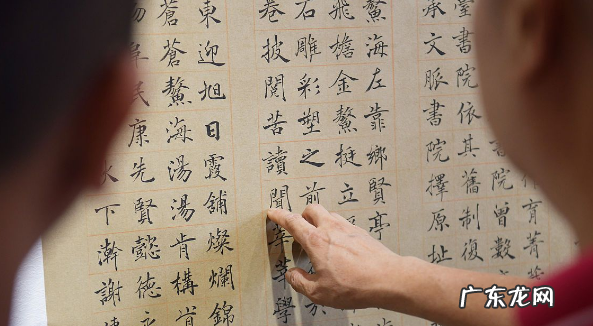 育菁
院曾數
臺書院依其舊制復
承文脈書院擇原址
鰲海左靠鄉賢亭
飛檐金鰲挺立
石雕彩塑之前
卷披閱苦讀聞莘莘學
東迎旭日霞鋪燦爛錦
蒼蒼鰲海湯湯肯構
民康先賢懿德
下瀚謝
广东龙网